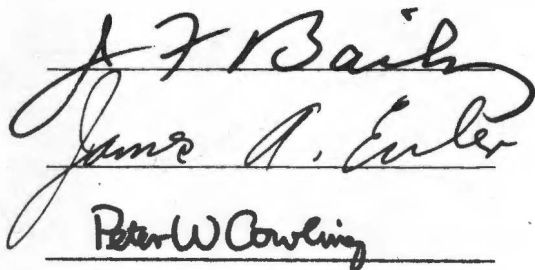 J F Bailey
James A. Euler
Peter W Cowling